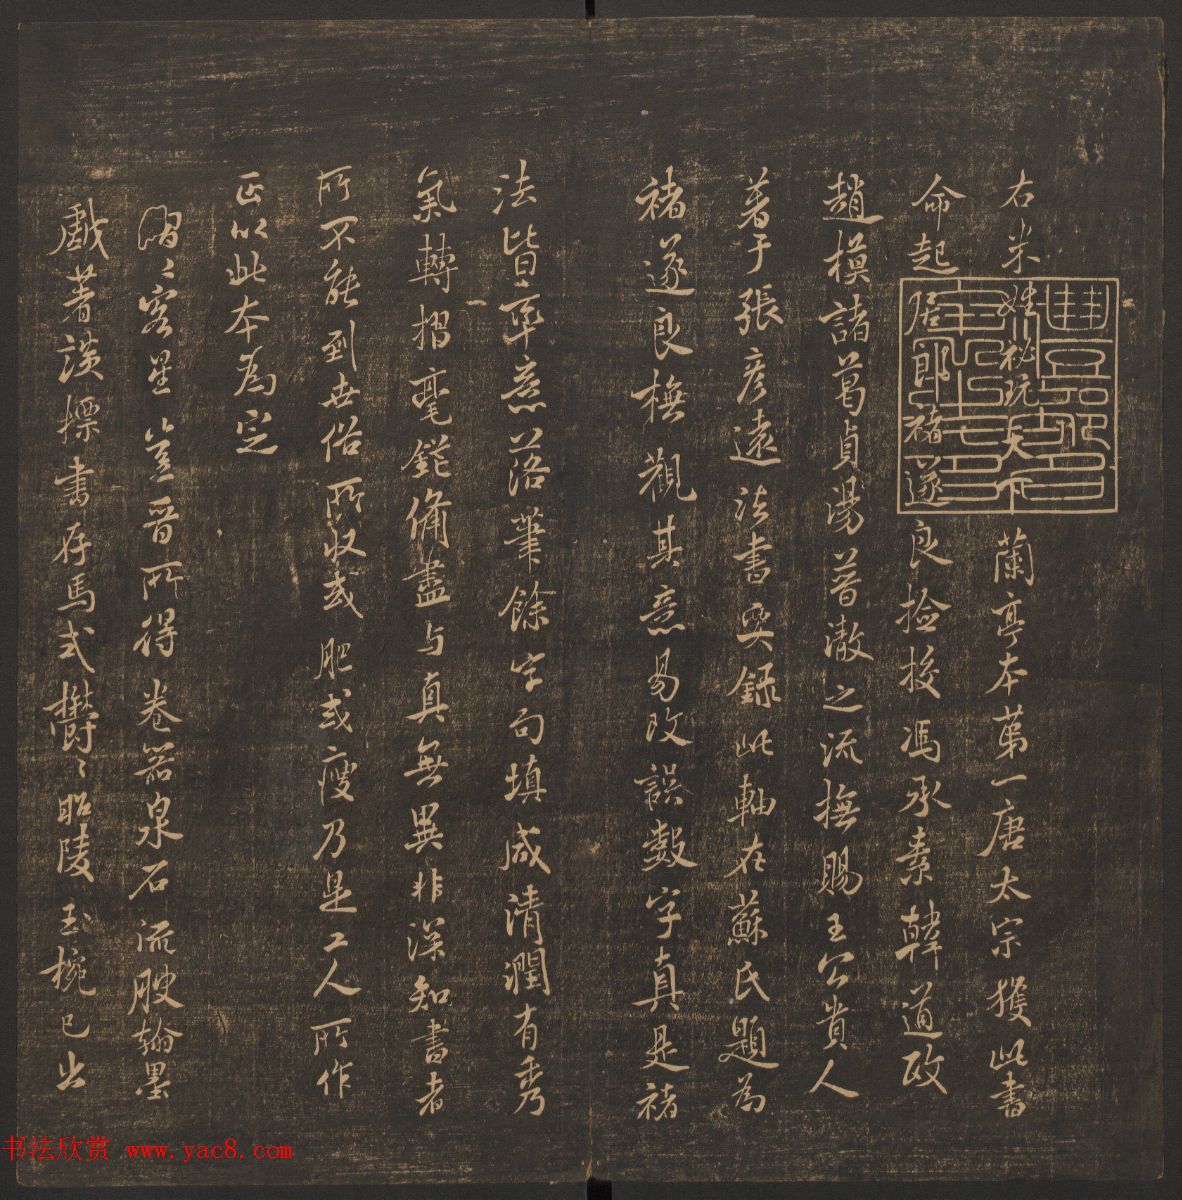 右米姓秘玩天下蘭亭本第一唐太宗獲此書
命起居郎褚遂良撿挍馮承素韓道政
趙模諸葛貞湯普澈之流撫賜王公貴人
著于張彥遠法書要録此軸在蘇氏題為
褚遂良橅觀其意易改誤數字真是褚
法皆率意落筆餘字句填咸清潤有秀
氣轉摺毫鋩備盡与真無異非深知書者
所不能到世俗所收或肥或瘦乃是工人所作
正以此本為定
熠〻客星豈晉所得卷器泉石流腴翰墨
戲著談標書存馬式鬱〻昭陵玉椀已出
书法欣赏 www.yac8.com